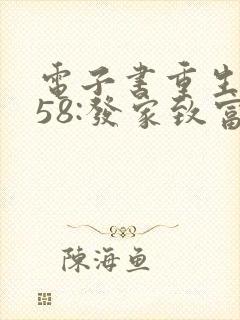 電子書重生
58:發家致富
陳海魚